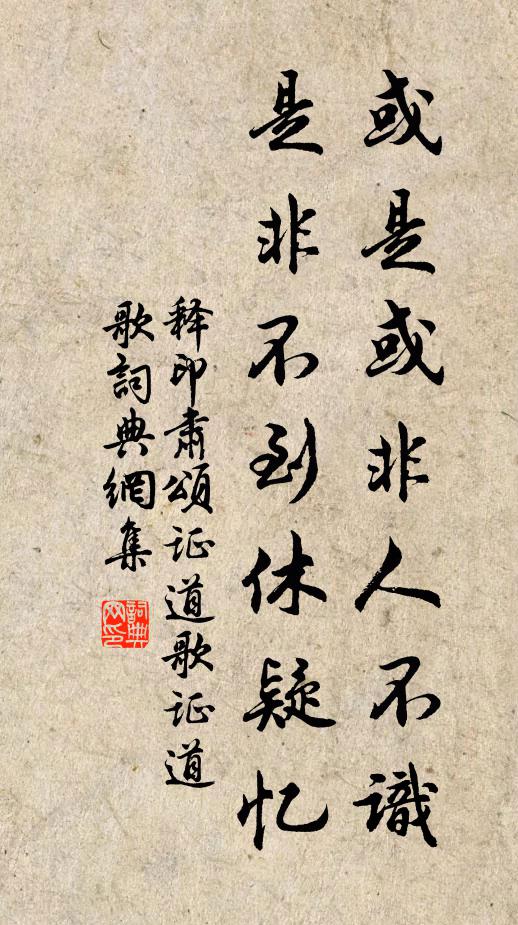 或是或非人不識
是非不到休疑忆
释印肃颂证道歌证道
歌詞典網集
詞典
网印